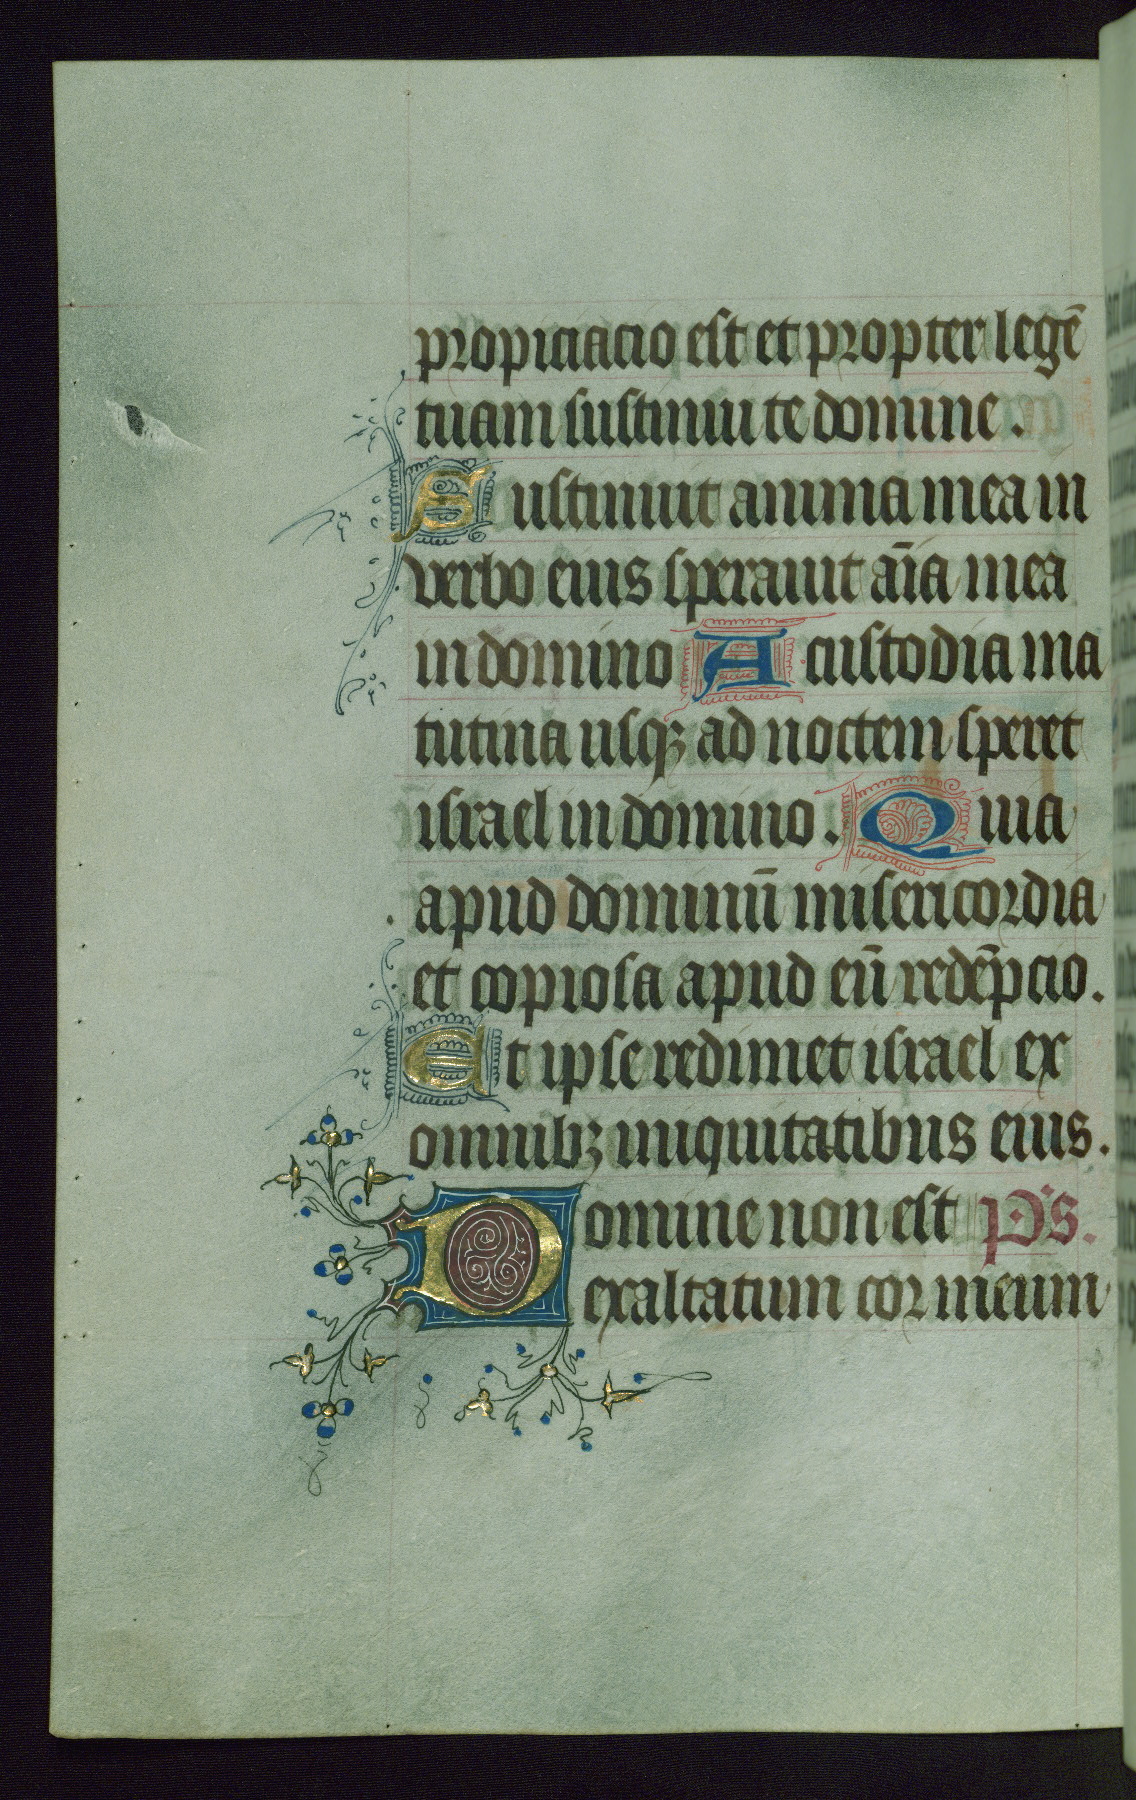 propiciacio est et propter legē
tuam sustinui te domine.
Sustinuit anima mea in
verbo eius speravit aīa mea
in domino A custodia ma
tutina usqꝫ ad noctem speret
israel in domino. Quia
apud dominū misericordia
et copiosa apud eū redēpcio.
Et ipse redimet israel ex
omnibꝫ iniquitatibus eius.
Domine non est Ps.
exaltatum cor meum